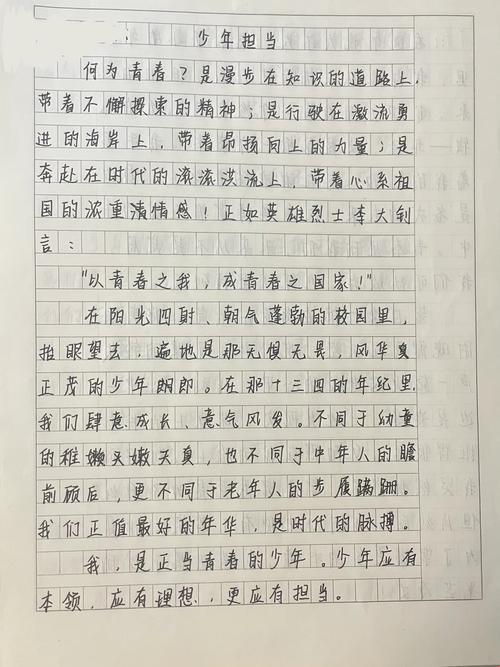 少年担当
何为青春？是漫步在知识的道路上，
带着不懈探索的精神；是行驶在激流勇
进的海岸上，带着昂扬向上的力量；是
奔赴在时代的滚滚洪流上，带着心系祖
国的浓重清情感！正如英雄烈士李大钊
言：
“以青春之我，成青春之国家！”
在阳光四射、朝气蓬勃的校园里，
抬眼望去，遍地是那无惧无畏，风华
正茂的少年朗郎。在那十三四的年纪里，
我们肆意成长、意气风发。不同于幼童
的稚嫩天真，也不同于中年人的瞻
前顾后，更不同于老年人的步履蹒跚。
我们正值最好的年华，是时代的脉搏。
我，是正当青春的少年。少年应有
本领，应有理想，更应有担当。